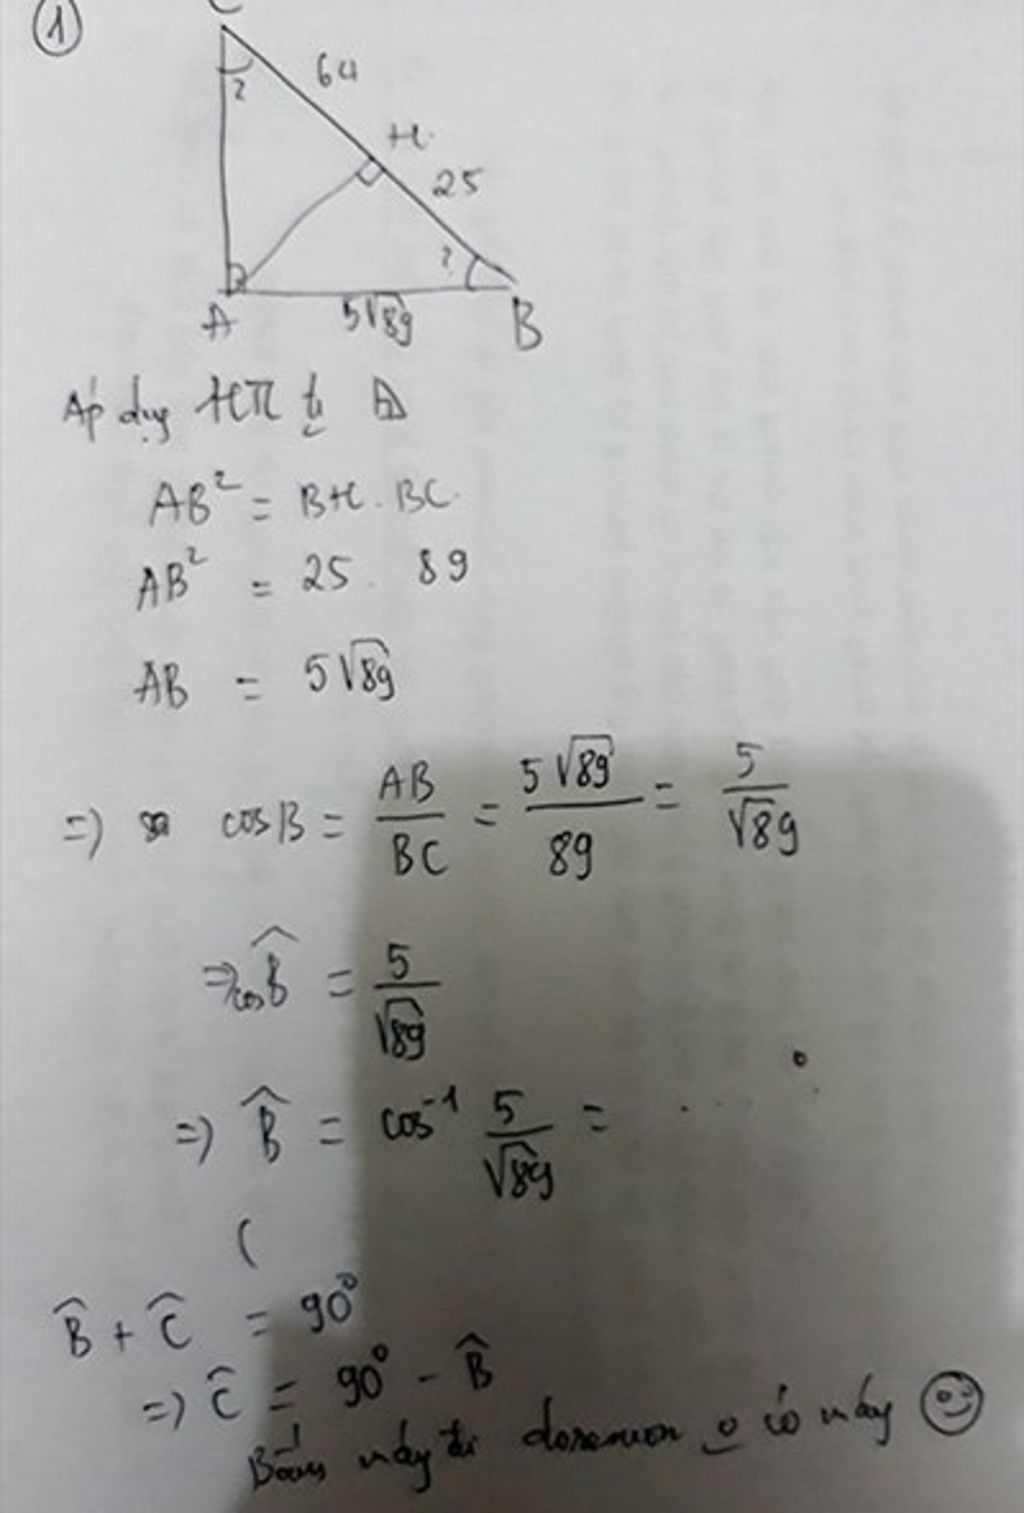 ①
C
64
?
H
25
?
A
5√89
B
Áp dụng HTL
AB² = BH . BC
AB² = 25 . 89
AB = 5√89
=> cosB = AB/BC = 5√89/89 = 5/√89
=> cos B̂ = 5/√89
=> B̂ = cos⁻¹ 5/√89 = ....
(
B̂ + Ĉ = 90°
=> Ĉ = 90° - B̂
Bấm máy đi doremon có máy